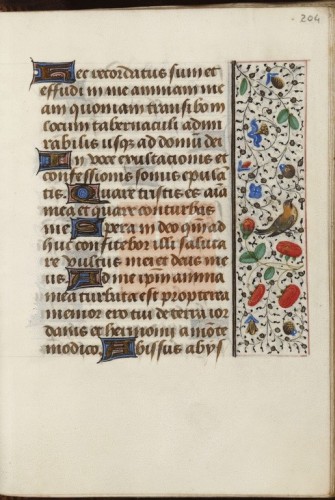 204
Hec recordatus sum et
effudi in me animam me
am quoniam transibo in
locum tabernaculi admi
rabilis usq3 ad domū dei
In voce exultacionis et
confessionis sonus epula
tis. Quare tristis es aīa
mea et quare conturbas
me Spera in deo qm̄ ad
huc confitebor illi saluta
re vultus mei et deus me
us. Ad me ipm̄ anima
mea turbata est propterea
memor ero tui de terra ior
danis et hermoni a mōte
modico. Abissus abys